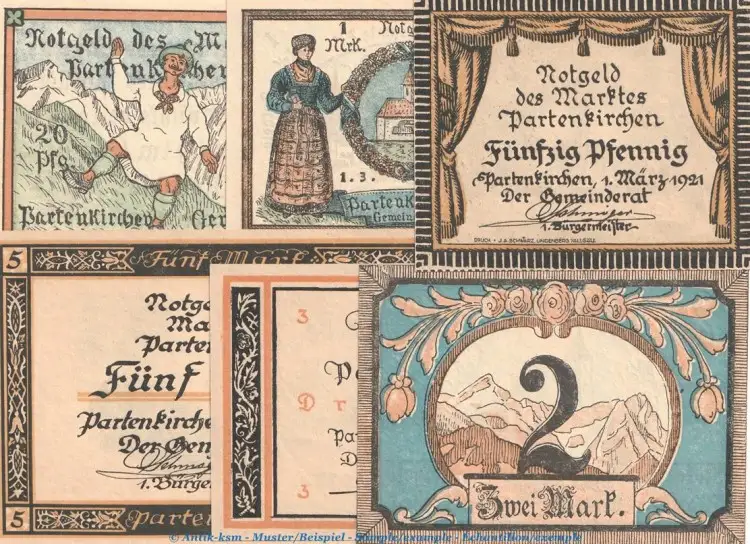 Notgeld des M
Partenkirchen
20
Pfg.
Partenkirchen
1
Mrk.
Notg
1. 3.
Partenk
Gemein
Notgeld
des Marktes
Partenkirchen
Fünfzig Pfennig
Partenkirchen, 1. März 1921
Der Gemeinderat
1. Bürgermeister
DRUCK · J.A. SCHWARZ, LINDENBERG
5
Fünf Mark
Notge
Ma
Parten
Fünf
Partenkirche
Der Gem
1. Bürge
5
Parten
3
D r
Pa
D
3
2
Zwei Mark.
© Antik-ksm - Muster/Beispiel - Sample/example - Echantillon/exemple